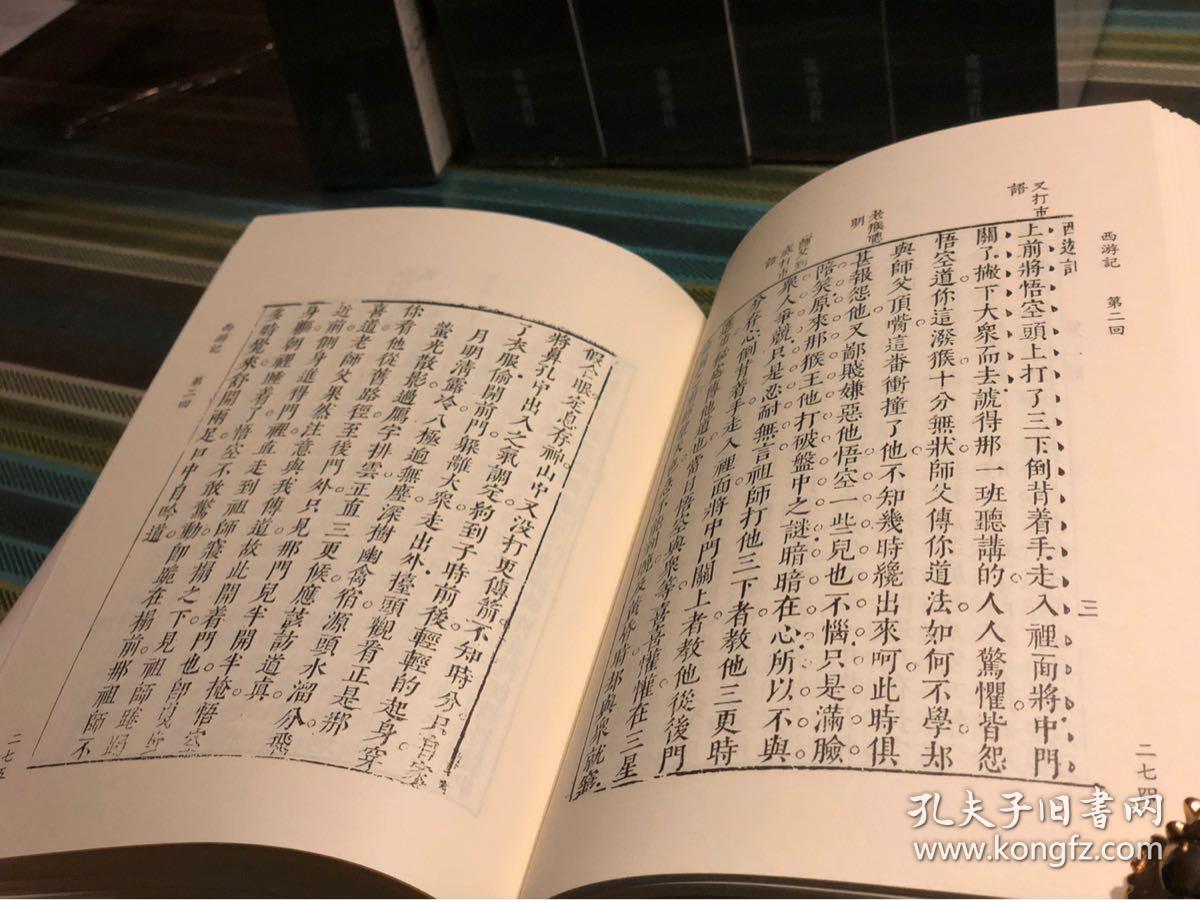 西游記 第二回
二七四
又打市
語
老猴聰
明
西遊記
三
上前將悟空頭上打了三下倒背着手走入裡面將中門
關了撇下大衆而去諕得那一班聽講的人人驚懼皆怨
悟空道你這潑猴十分無狀師父傳你道法如何不學却
與師父頂嘴這番衝撞了他不知幾時纔出來呵此時俱
甚報怨他又鄙賤嫌惡他悟空一些兒也不惱只是滿臉
陪笑原來那猴王他打破盤中之謎暗暗在心所以不與
衆人爭競只是忍耐無言祖師打他三下者教他三更時
分存心倒背着手走入裡面將中門關上者教他從後門
當日悟空與衆等喜喜懽懽在三星
假合眼定息存神山中又没打更傳箭不知時分只自家
將鼻孔中出入之氣調定約到子時前後輕輕的起身穿
了衣服偷開前門躲離大衆走出外擡頭觀看正是那
月明清露冷八極迥無塵深樹幽禽宿源頭水溜分
螢光散影過鴈字排雲正直三更候應該訪道真
你看他從舊路徑至後門外只見那門兒半開半掩悟空
喜道老師父果然注意與我傳道故此開着門也即
近前側身進得門裡直走到祖師寢榻之下見祖師
身朝裡睡着了悟空不敢驚動即跪在榻前那祖師不
多時覺來舒開兩足口中自吟道
西游記 第二回
二七五
孔夫子旧書网
www.kongfz.com